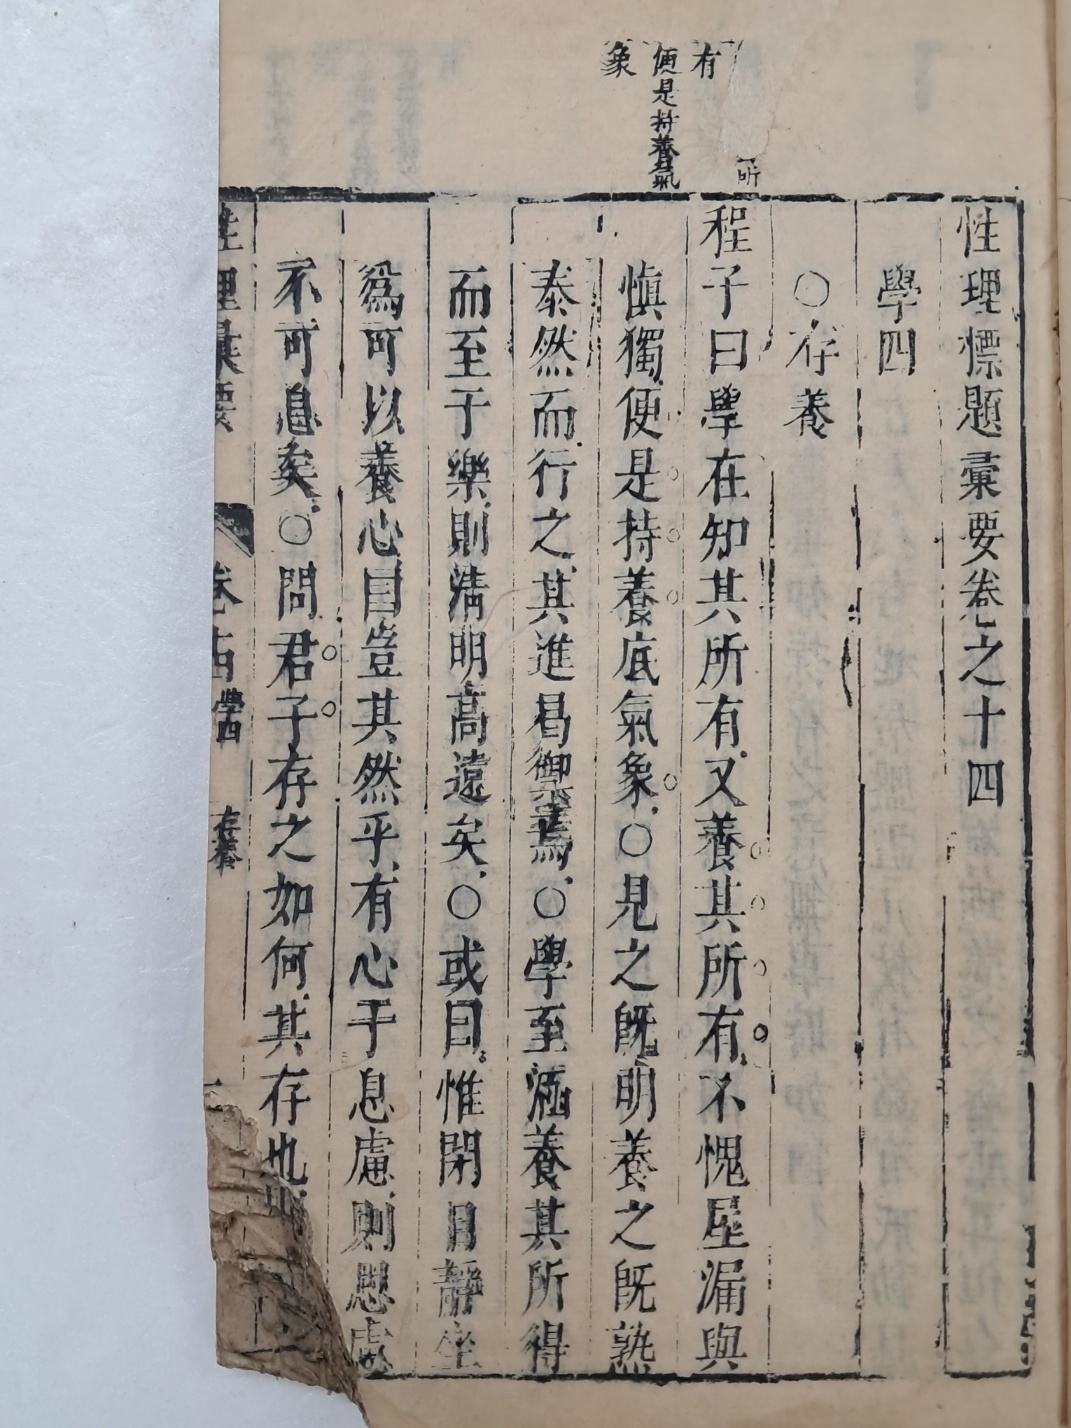 所
有
便是持養氣
象
性理標題彙要卷之十四
學四
○存養
程子曰學在知其所有又養其所有不愧屋漏與
慎獨便是持養底氣象○見之旣明養之旣熟
泰然而行之其進曷禦焉○學至涵養其所得
而至于樂則淸明高遠矣○或曰惟閉目靜坐
爲可以養心目豈其然乎有心于息慮則思慮
不可息矣○問君子存之如何其存也
性理彙要 卷十四 學四 存養